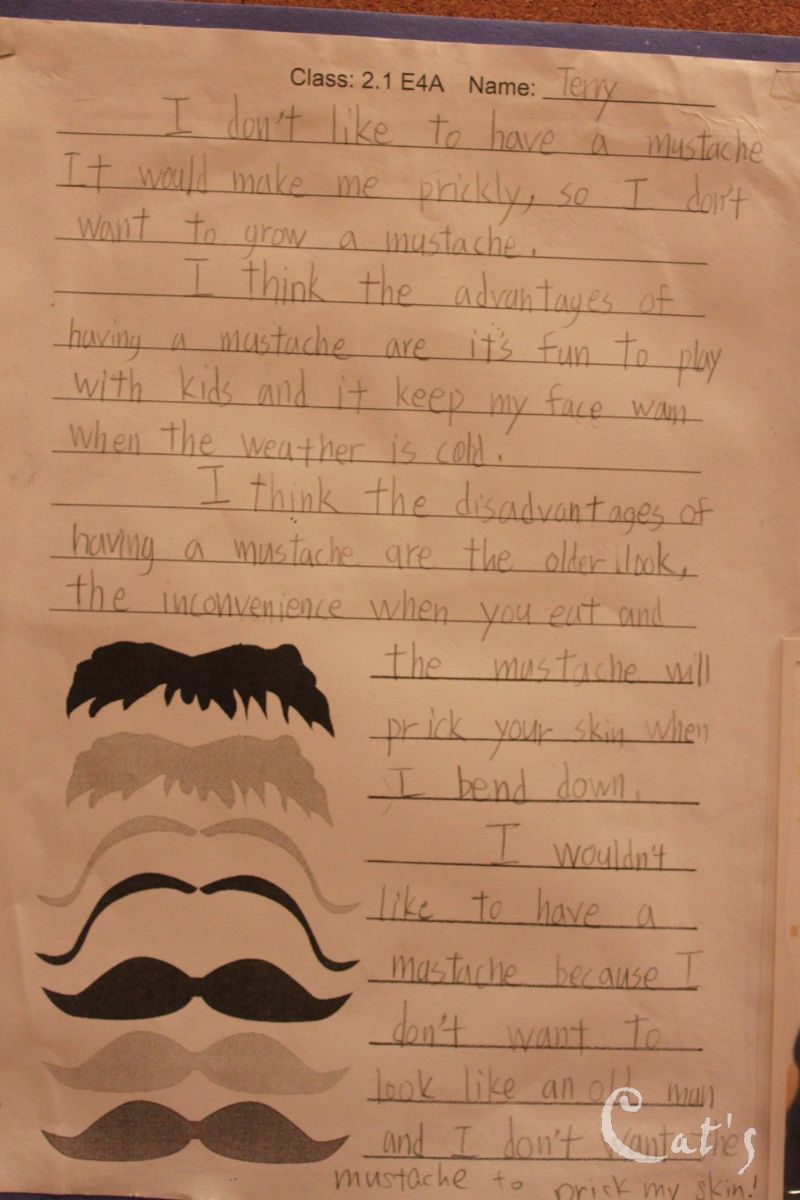 Class: 2.1 E4A Name: Terry
I don't like to have a mustache
It would make me prickly, so I don't
want to grow a mustache.
I think the advantages of
having a mustache are it's fun to play
with kids and it keep my face wam
when the weather is cold.
I think the disadvantages of
having a mustache are the older look,
the inconvenience when you eat and
the mustache will
prick your skin when
I bend down.
I wouldn't
like to have a
mustache because I
don't want to
look like an old man
and I don't want the
mustache to prick my skin!
Cat's